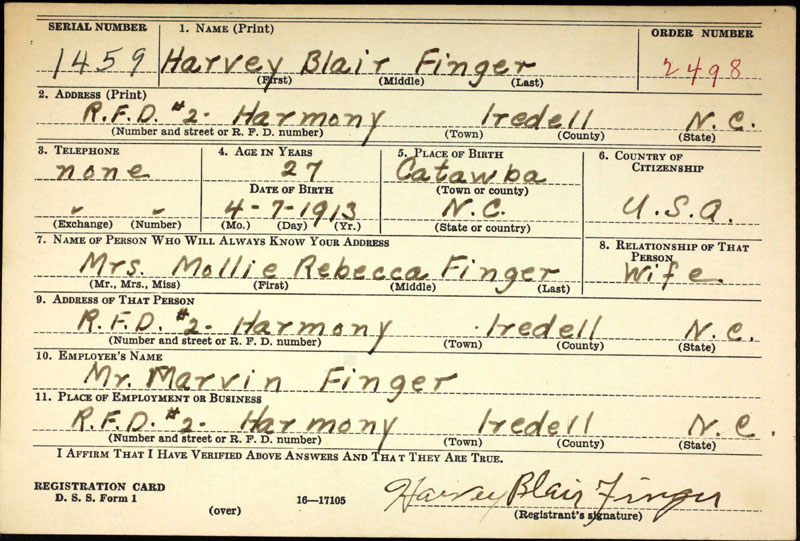 SERIAL NUMBER 1. NAME (Print) ORDER NUMBER
1459 Harvey Blair Finger 2498
(First) (Middle) (Last)
2. ADDRESS (Print)
R.F.D. #2- Harmony Iredell N.C.
(Number and street or R. F. D. number) (Town) (County) (State)
3. TELEPHONE 4. AGE IN YEARS 5. PLACE OF BIRTH 6. COUNTRY OF CITIZENSHIP
none 27 Catawba
DATE OF BIRTH (Town or county)
" " 4-7-1913 N.C. U.S.A.
(Exchange) (Number) (Mo.) (Day) (Yr.) (State or country)
7. NAME OF PERSON WHO WILL ALWAYS KNOW YOUR ADDRESS 8. RELATIONSHIP OF THAT PERSON
Mrs. Mollie Rebecca Finger Wife.
(Mr., Mrs., Miss) (First) (Middle) (Last)
9. ADDRESS OF THAT PERSON
R.F.D. #2- Harmony Iredell N.C.
(Number and street or R. F. D. number) (Town) (County) (State)
10. EMPLOYER'S NAME
Mr. Marvin Finger
11. PLACE OF EMPLOYMENT OR BUSINESS
R.F.D. #2- Harmony Iredell N.C.
(Number and street or R. F. D. number) (Town) (County) (State)
I AFFIRM THAT I HAVE VERIFIED ABOVE ANSWERS AND THAT THEY ARE TRUE.
REGISTRATION CARD Harvey Blair Finger
D. S. S. Form 1 (over) 16—17105 (Registrant's signature)